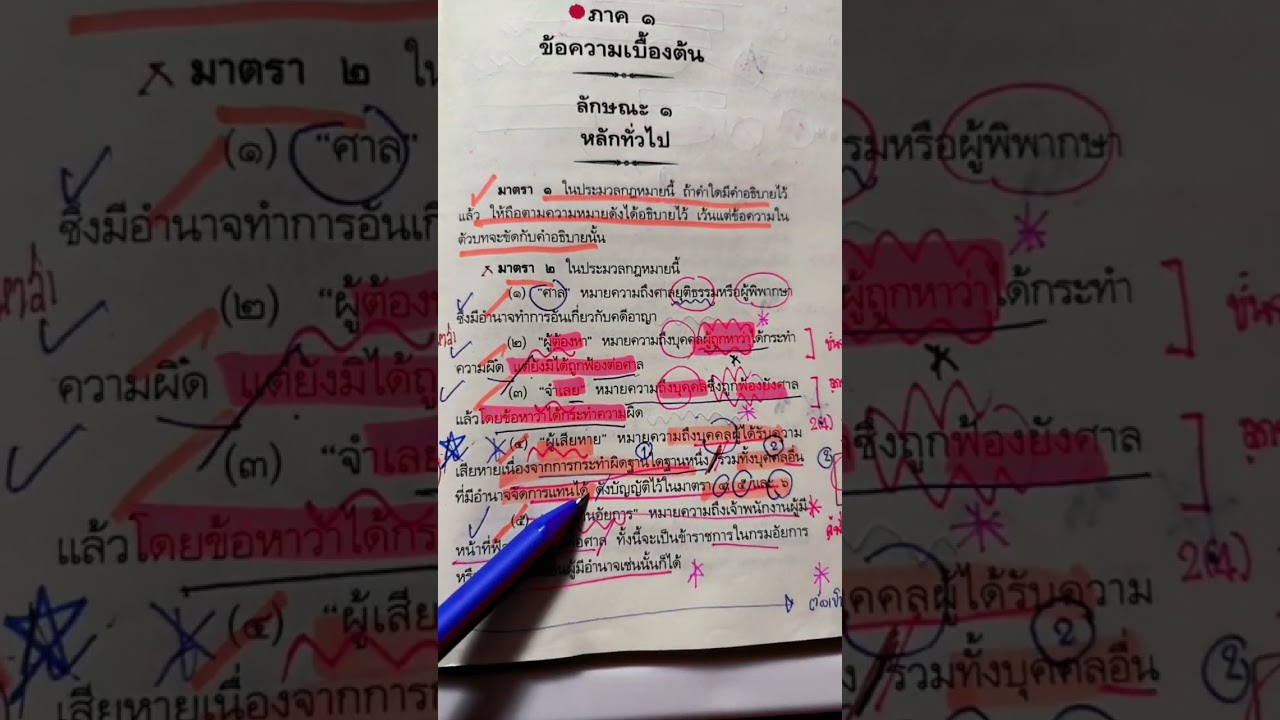 ภาค ๑
ข้อความเบื้องต้น
ลักษณะ ๑
หลักทั่วไป
มาตรา ๑ ในประมวลกฎหมายนี้ ถ้าคำใดมีคำอธิบายไว้
แล้ว ให้ถือตามความหมายดังได้อธิบายไว้ เว้นแต่ข้อความใน
ตัวบทจะขัดกับคำอธิบายนั้น
มาตรา ๒ ในประมวลกฎหมายนี้
(๑) “ศาล” หมายความถึงศาลยุติธรรมหรือผู้พิพากษา
ซึ่งมีอำนาจทำการอันเกี่ยวกับคดีอาญา
(๒) “ผู้ต้องหา” หมายความถึงบุคคลผู้ถูกหาว่าได้กระทำ
ความผิด แต่ยังมิได้ถูกฟ้องต่อศาล
(๓) “จำเลย” หมายความถึงบุคคลซึ่งถูกฟ้องยังศาล
แล้วโดยข้อหาว่าได้กระทำความผิด
(๔) “ผู้เสียหาย” หมายความถึงบุคคลผู้ได้รับความ
เสียหายเนื่องจากการกระทำผิดฐานใดฐานหนึ่ง รวมทั้งบุคคลอื่น
ที่มีอำนาจจัดการแทนได้ ดังบัญญัติไว้ในมาตรา ๔, ๕ และ ๖
(๕) อัยการ” หมายความถึงเจ้าพนักงานผู้มี
หน้าที่ฟ้อง ศาล ทั้งนี้จะเป็นข้าราชการในกรมอัยการ
หรือ ผู้มีอำนาจเช่นนั้นก็ได้
2(4)
มาตรา ๒ ใ
(๑) “ศาล”
ซึ่งมีอำนาจทำการอันเกี่
(๒) “ผู้ต้องห
ความผิด แต่ยังมิได้ถู
(๓) “จำเลย
แล้วโดยข้อหาว่าได้กร
(๔) “ผู้เสีย
เสียหายเนื่องจากการก
รมหรือผู้พิพากษา
ผู้ถูกหาว่าได้กระทำ
ซึ่งถูกฟ้องยังศาล
2(4)
คคลผู้ได้รับความ
2
รวมทั้งบุคคลอื่น
2